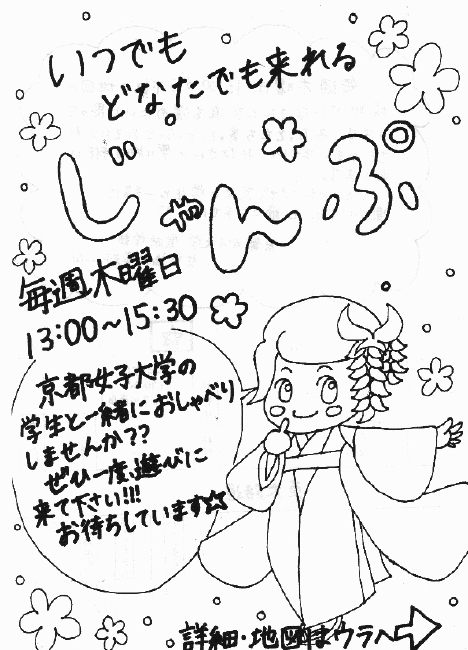 いつでも
どなたでも来れる
じゃんぷ
毎週木曜日
13:00～15:30
京都女子大学の
学生と一緒におしゃべり
しませんか??
ぜひ一度、遊びに
来て下さい!!!
お待ちしています☆
詳細・地図はウラへ